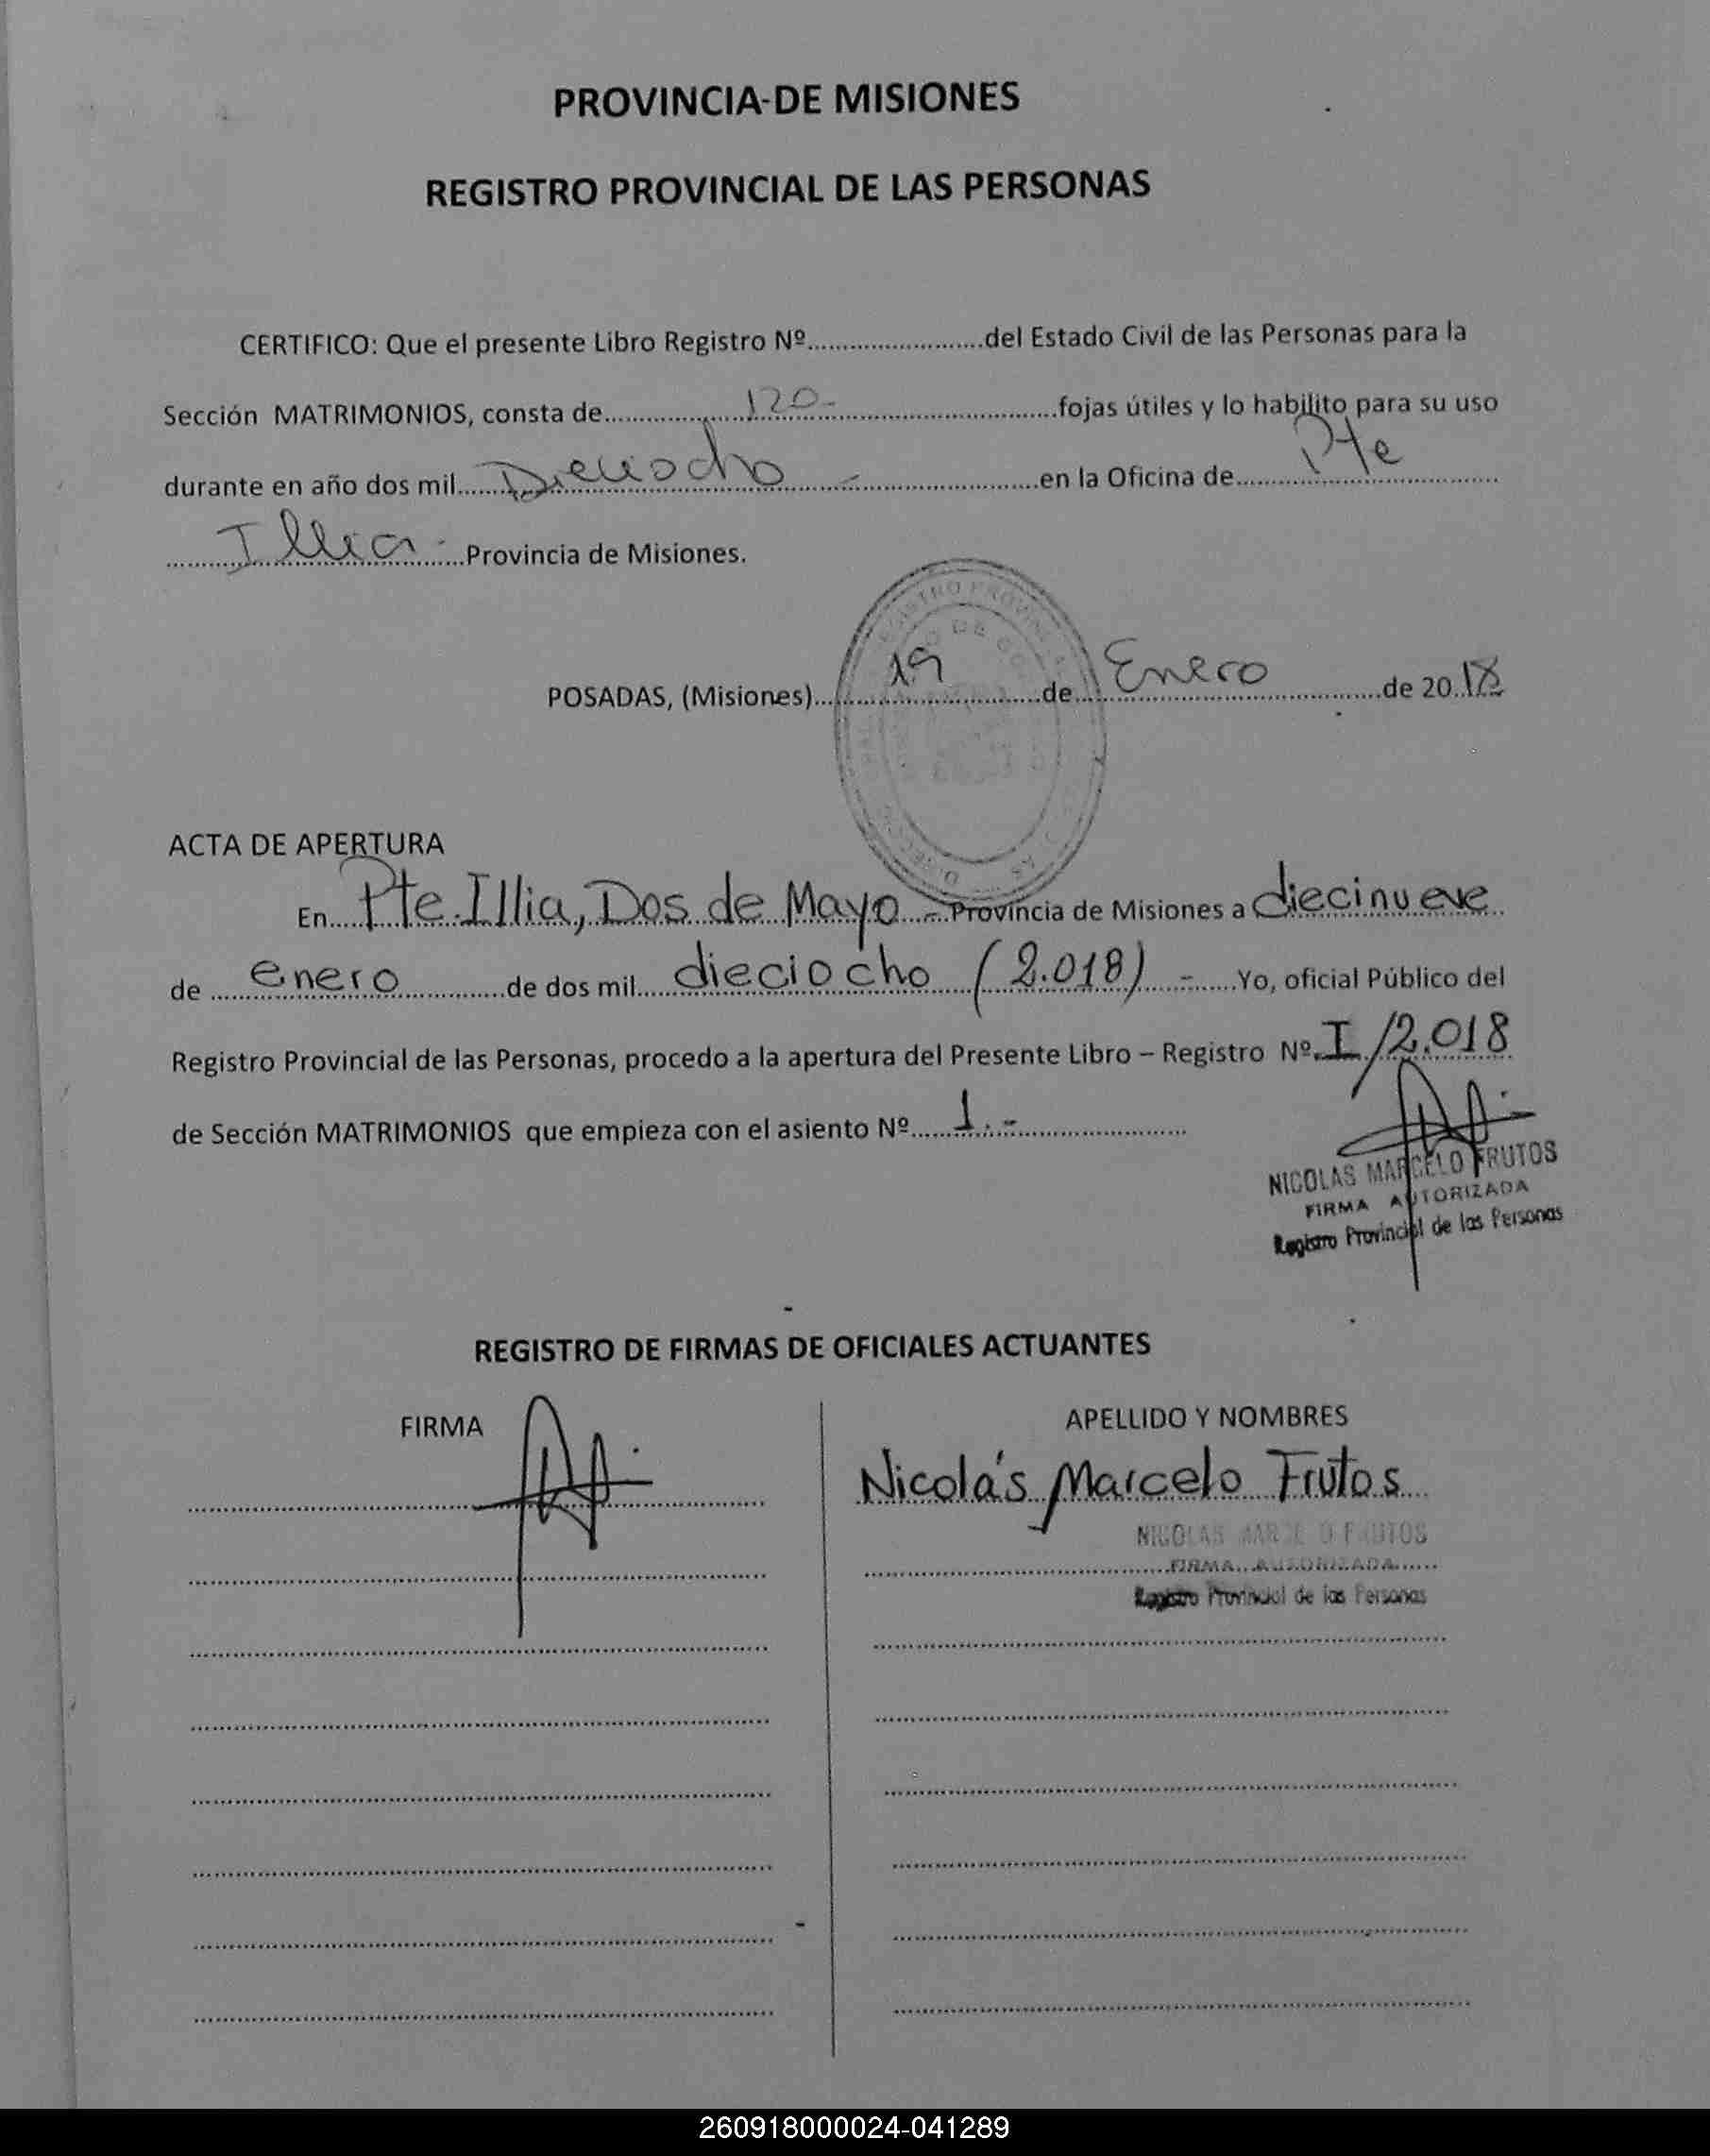 PROVINCIA-DE MISIONES
REGISTRO PROVINCIAL DE LAS PERSONAS
CERTIFICO: Que el presente Libro Registro Nº..........................del Estado Civil de las Personas para la
Sección MATRIMONIOS, consta de....................120-....................fojas útiles y lo habilito para su uso
durante en año dos mil......Dieciocho-..........................en la Oficina de........Pte............
........Illia-......Provincia de Misiones.
POSADAS, (Misiones)......19............de....Enero................de 20.18
ACTA DE APERTURA
En.....Pte. Illia, Dos de Mayo.-Provincia de Misiones a diecinueve
de ......enero..............de dos mil.....dieciocho (2.018).-......Yo, oficial Público del
Registro Provincial de las Personas, procedo a la apertura del Presente Libro – Registro Nº.I/2.018
de Sección MATRIMONIOS que empieza con el asiento Nº......1.-........................
NICOLAS MARCELO FRUTOS
FIRMA AUTORIZADA
Registro Provincial de las Personas
REGISTRO DE FIRMAS DE OFICIALES ACTUANTES
FIRMA
APELLIDO Y NOMBRES
Nicolás Marcelo Frutos
NICOLAS MARCELO FRUTOS
FIRMA AUTORIZADA
Registro Provincial de las Personas
260918000024-041289